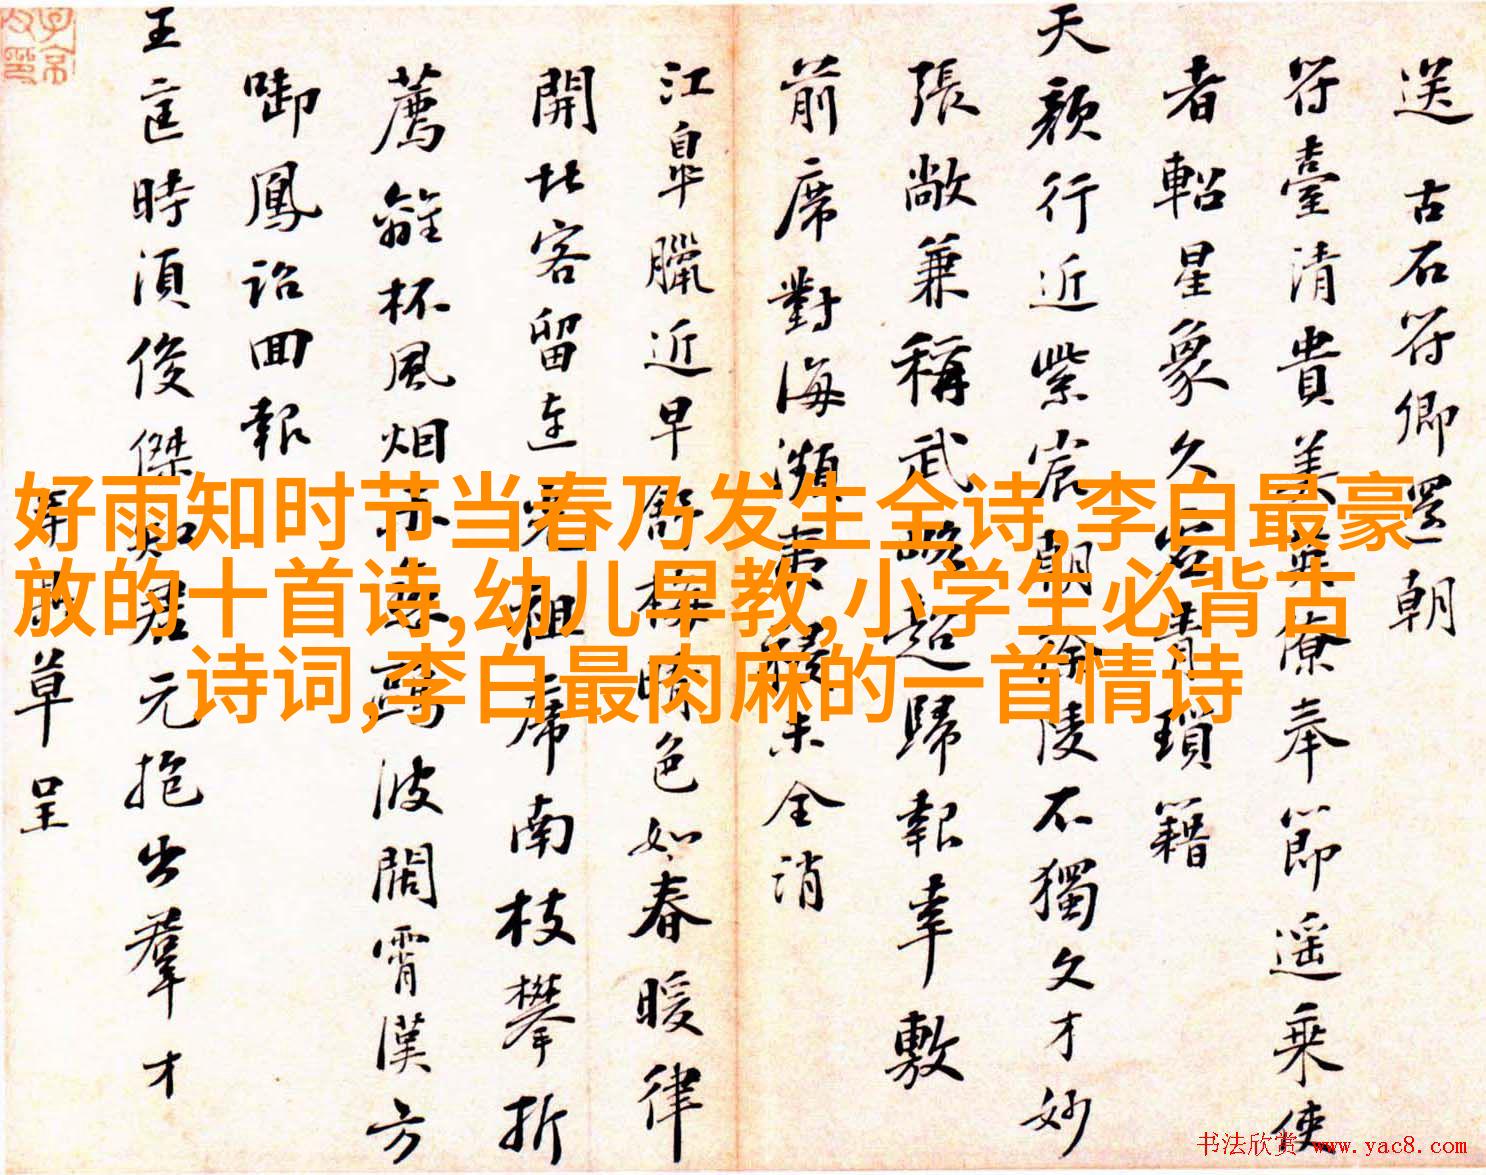 送古石符卿還朝
符臺清貴美英僚奉節遥乘使
者軺星象久青瑣籍
天顔行近紫宸朝陵不獨文才妙
張敞兼稱武略超歸報幸敷
前席對海瀕夷未全消
江臯臘近早舒梅晴色如春暖律
開北客留連俎席南枝攀折
薦離杯風烟波闊霄漢方
啣鳳詔囬報
王時湏俊傑知君元抱出羣才
草呈
好雨知时节当春乃发生全诗,李白最豪
放的十首诗,幼儿早教,小学生必背古
诗词,李白最肉麻的一首情诗
书法欣赏 www.yac8.com